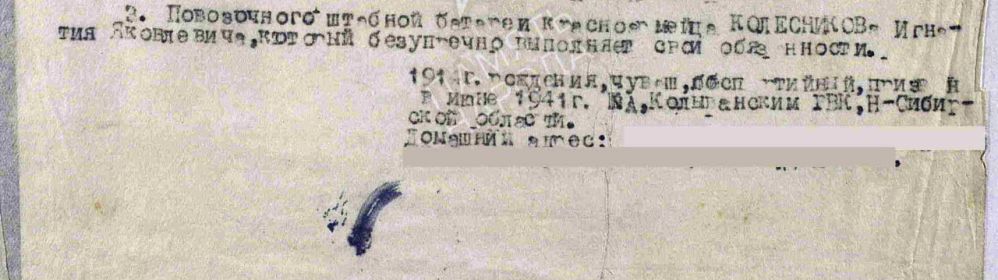 3. Повозочного штабной батареи красноармейца КОЛЕСНИКОВа Игна-
тия Яковлевича, который безупречно выполняет свои обязанности.
рождения, чуваш, беспартийный, призван
в июне 1941г. Колыванским РВК, Н-Сибир-
ской области.
Домашний адрес: